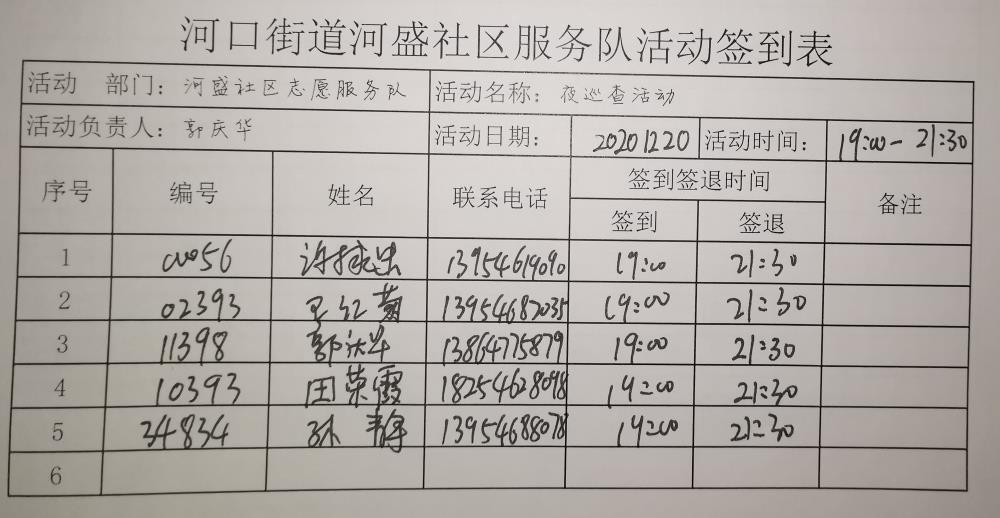 河口街道河盛社区服务队活动签到表
活动 部门：河盛社区志愿服务队 活动名称：夜巡查活动
活动负责人：郭庆华 活动日期： 20201220 活动时间： 19:00-21:30
序号 编号 姓名 联系电话 签到签退时间 备注
签到 签退
1 00056 许振忠 13954619090 19:00 21:30
2 02393 王红菊 13954682035 19:00 21:30
3 11398 郭庆华 13864775879 19:00 21:30
4 10393 田荣霞 18254628098 19:00 21:30
5 34834 孙静 13954688078 19:00 21:30
6